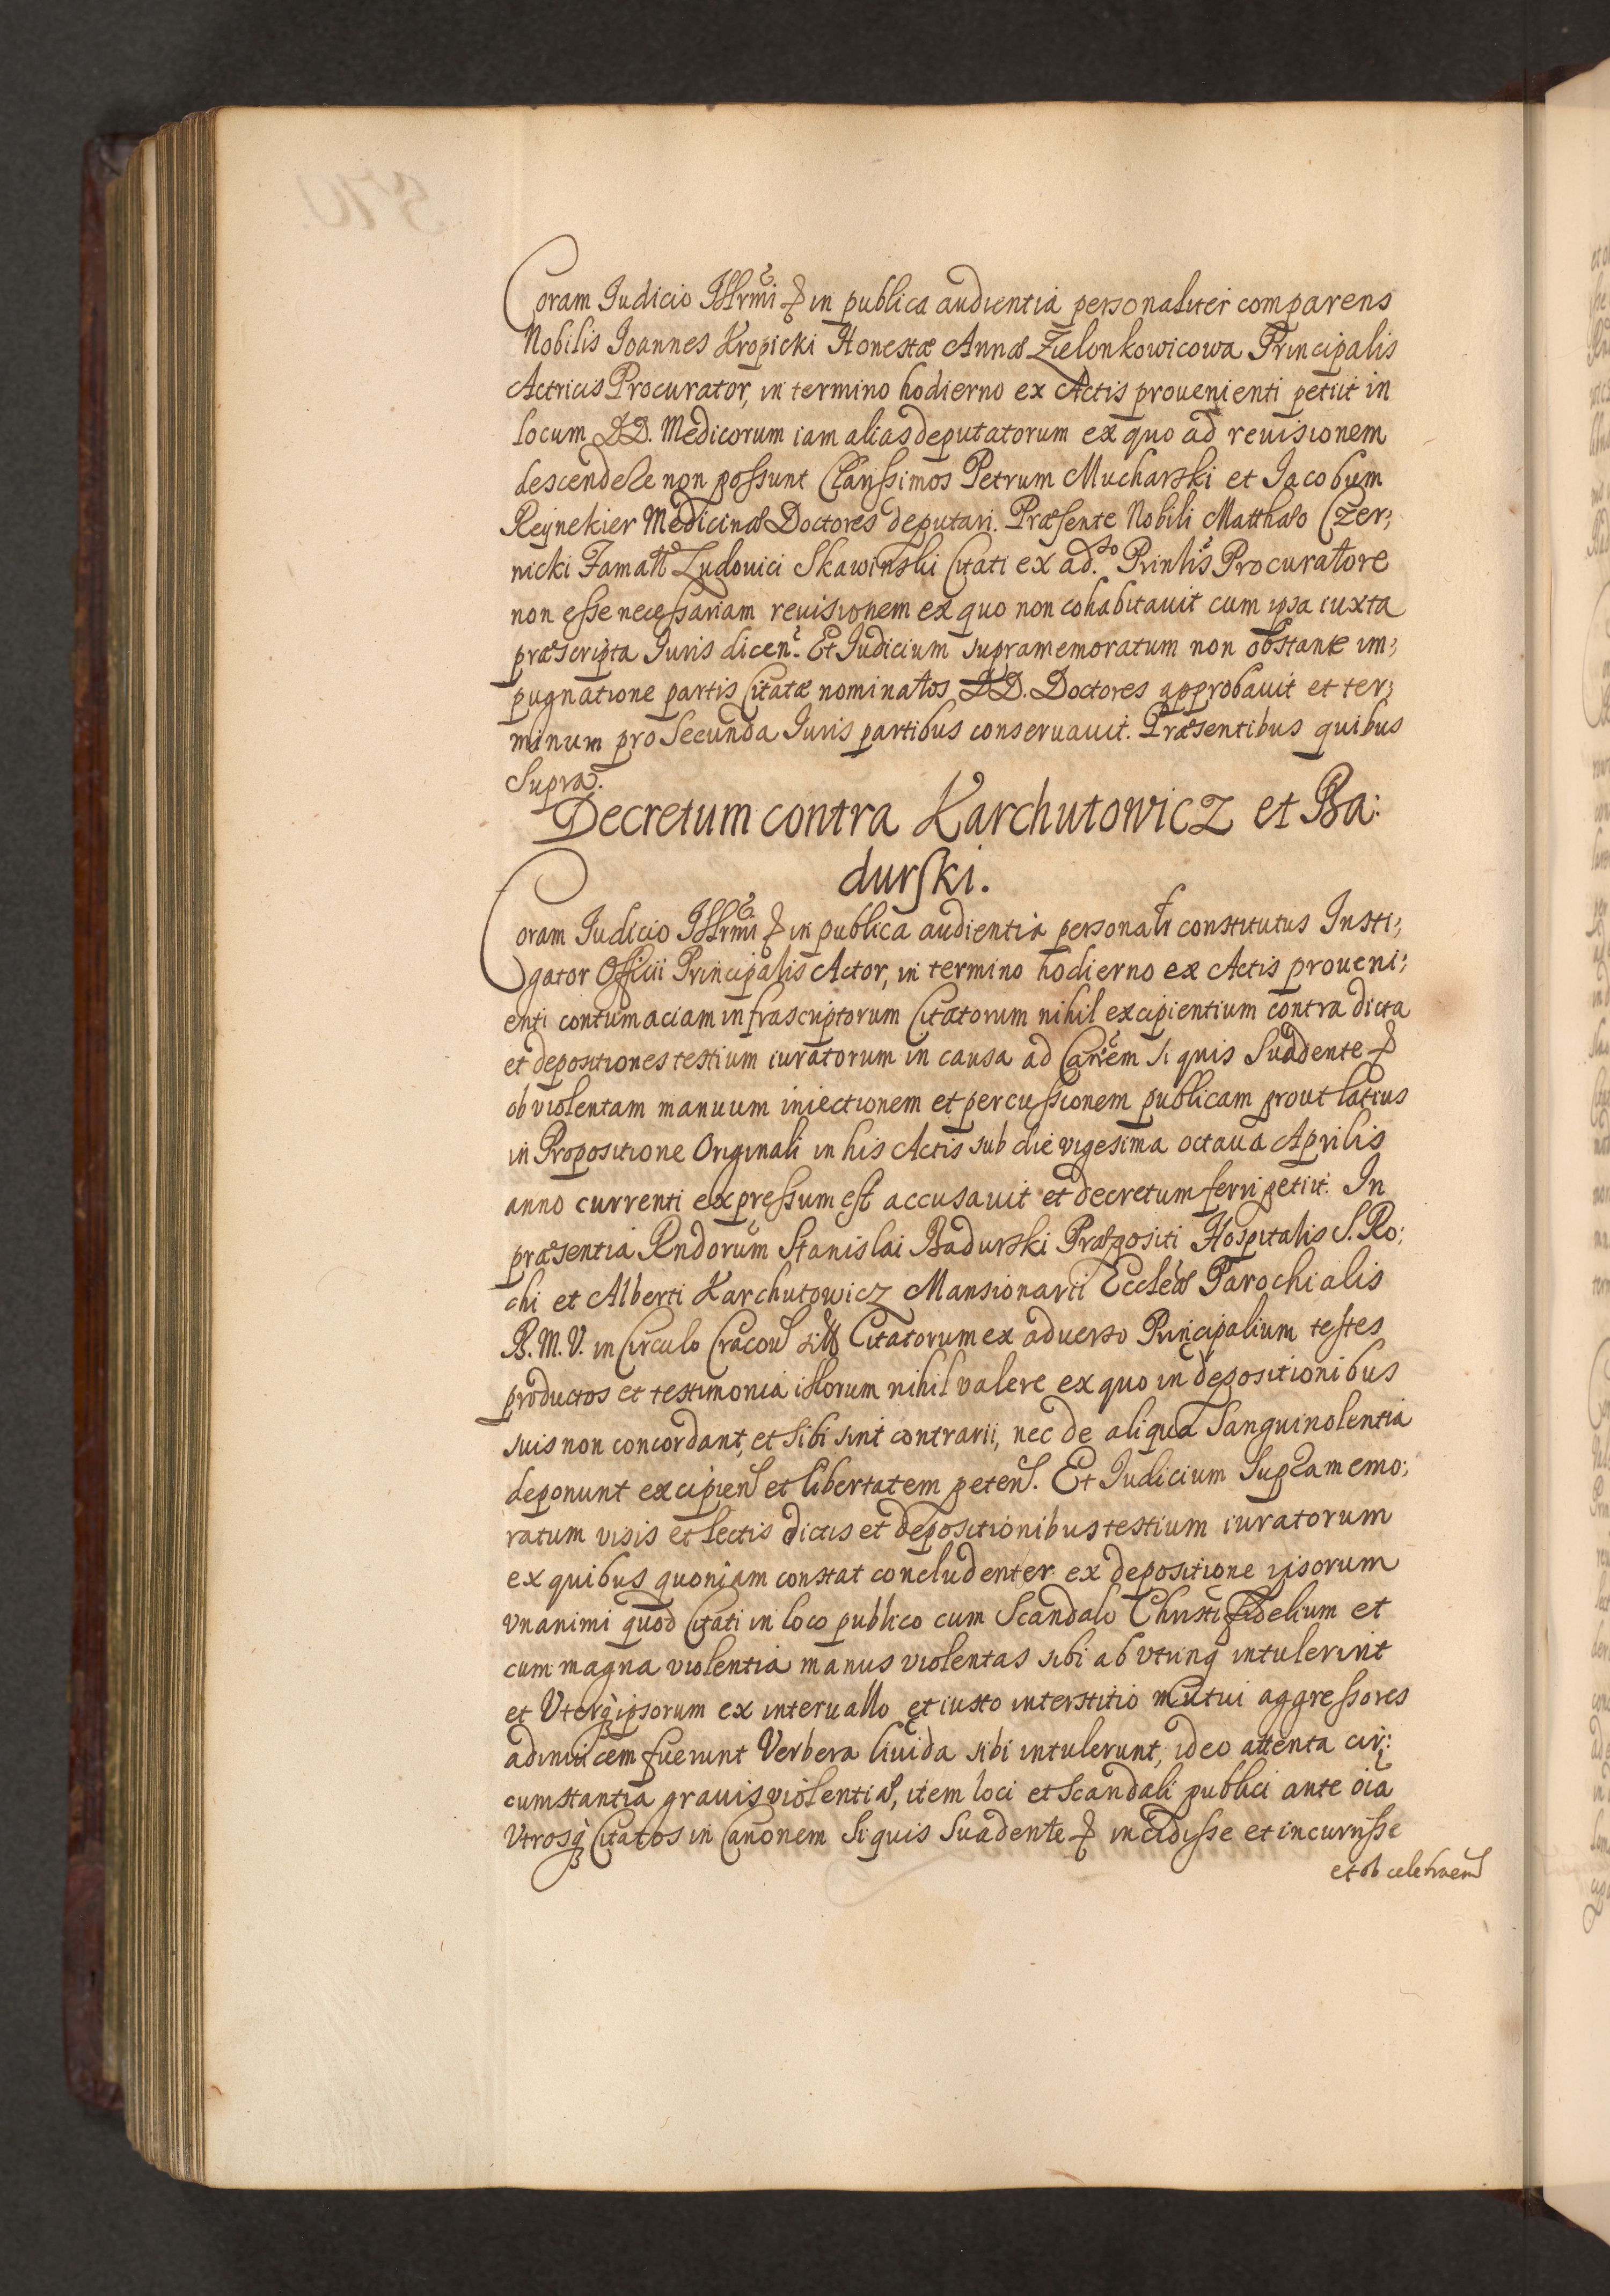 Coram Iudicio Illrmi & in publica audientia personaliter comparens
Nobilis Ioannes Kropicki Honestæ Annæ Zielonkowicowa Principalis
Actricis Procurator, in termino hodierno ex Actis prouenienti petiit in
locum DD. Medicorum iam alias deputatorum ex quo ad reuisionem
descendere non possunt Clarissimos Petrum Mucharski et Iacobum
Reynekier Medicinæ Doctores deputari. Præsente Nobili Matthæo Czer;
nicki Famati Ludouici Skawinski Citati ex ad.so Prinlis Procuratore
non esse necessariam reuisionem ex quo non cohabitauit cum ipsa iuxta
præscripta Iuris dicen. Et Iudicium supramemoratum non obstante im;
pugnatione partis Citatæ nominatos DD. Doctores approbauit et ter;
minum pro Secunda Iuris partibus conseruauit. Præsentibus quibus
Supra.
Decretum contra Karchutowicz et Ba:
durski.
Coram Iudicio Illrmi & in publica audientia personalr constitutus Insti;
gator Officii Principalis Actor, in termino hodierno ex Actis proueni;
enti contumaciam infrascriptorum Citatorum nihil excipientium contra dicta
et depositiones testium iuratorum in causa ad Canem si quis Suadente &
ob violentam manuum iniectionem et percussionem publicam prout latius
in Propositione Originali in his Actis sub die vigesima octaua Aprilis
anno currenti expressum est accusauit et decretum ferri petiit. In
præsentia Rndorum Stanislai Badurski Præpositi Hospitalis S. Ro:
chi et Alberti Karchutowicz Mansionarii Eccleæ Parochialis
B. M. V. in Circulo Cracou Citatorum ex aduerso Principalium testes
productos et testimonia illorum nihil valere ex quo in depositionibus
suis non concordant, et sibi sint contrarii, nec de aliqua Sanguinolentia
deponunt excipien et libertatem peten. Et Iudicium Supramemo;
ratum visis et lectis dictis et depositionibus testium iuratorum
ex quibus quoniam constat concludenter ex depositione ipsorum
vnanimi quod Citati in loco publico cum Scandalo Christi fidelium et
cum magna violentia manus violentas sibi ab vtrinq intulerint
et Vterq ipsorum ex interuallo et iusto interstitio mutui aggressores
adinuicem fuerunt Verbera liuida sibi intulerunt, ideo attenta cir:
cumstantia grauis violentiæ, item loci et Scandali publici ante oia
Vtrosq Citatos in Canonem Si quis Suadente & incidisse et incurrisse
et ob